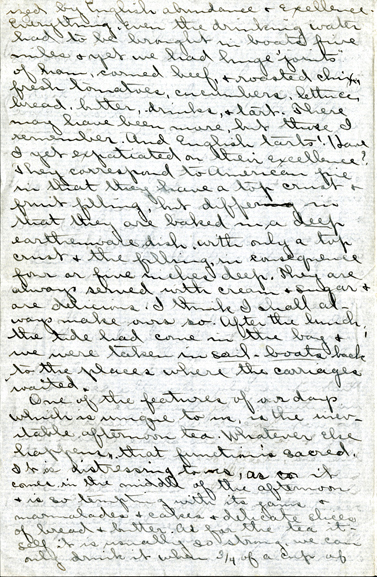 ized by English abundance & excellence.
Everything. Even the drinking water
had to be brought in boats five
miles & yet we had huge joints
of ham, corned beef, & roasted chix,
fresh tomatoes, cucumbers, lettuce,
bread, butter, drinks, & tart. There
may have been more, but those I
remember. And English tarts! Have
I yet expatiated on their excellence?
They correspond to American pie
in that they have a top crust &
fruit filling, but differing in
that they are baked in a deep
earthenware dish, with only a top
crust & the filling in consequence
four or five inches deep. They are
always served with cream & sugar &
are delicious. I think I shall al-
ways make ours so. After the lunch,
the tide had come in the bay &
we were taken in sail-boats back
to the places where the carriages
waited.
One of the features of our days
which is unique to me, is the inev-
itable afternoon tea. Whatever else
happens, that function is sacred.
It is distressing to us, as it
comes in the middle of the afternoon
& is so tempting with its jams &
marmalades & cakes & delicate slices
of bread & butter. As for the tea it-
self it is usually so strong, we can
only drink it when 3/4 of a cup of